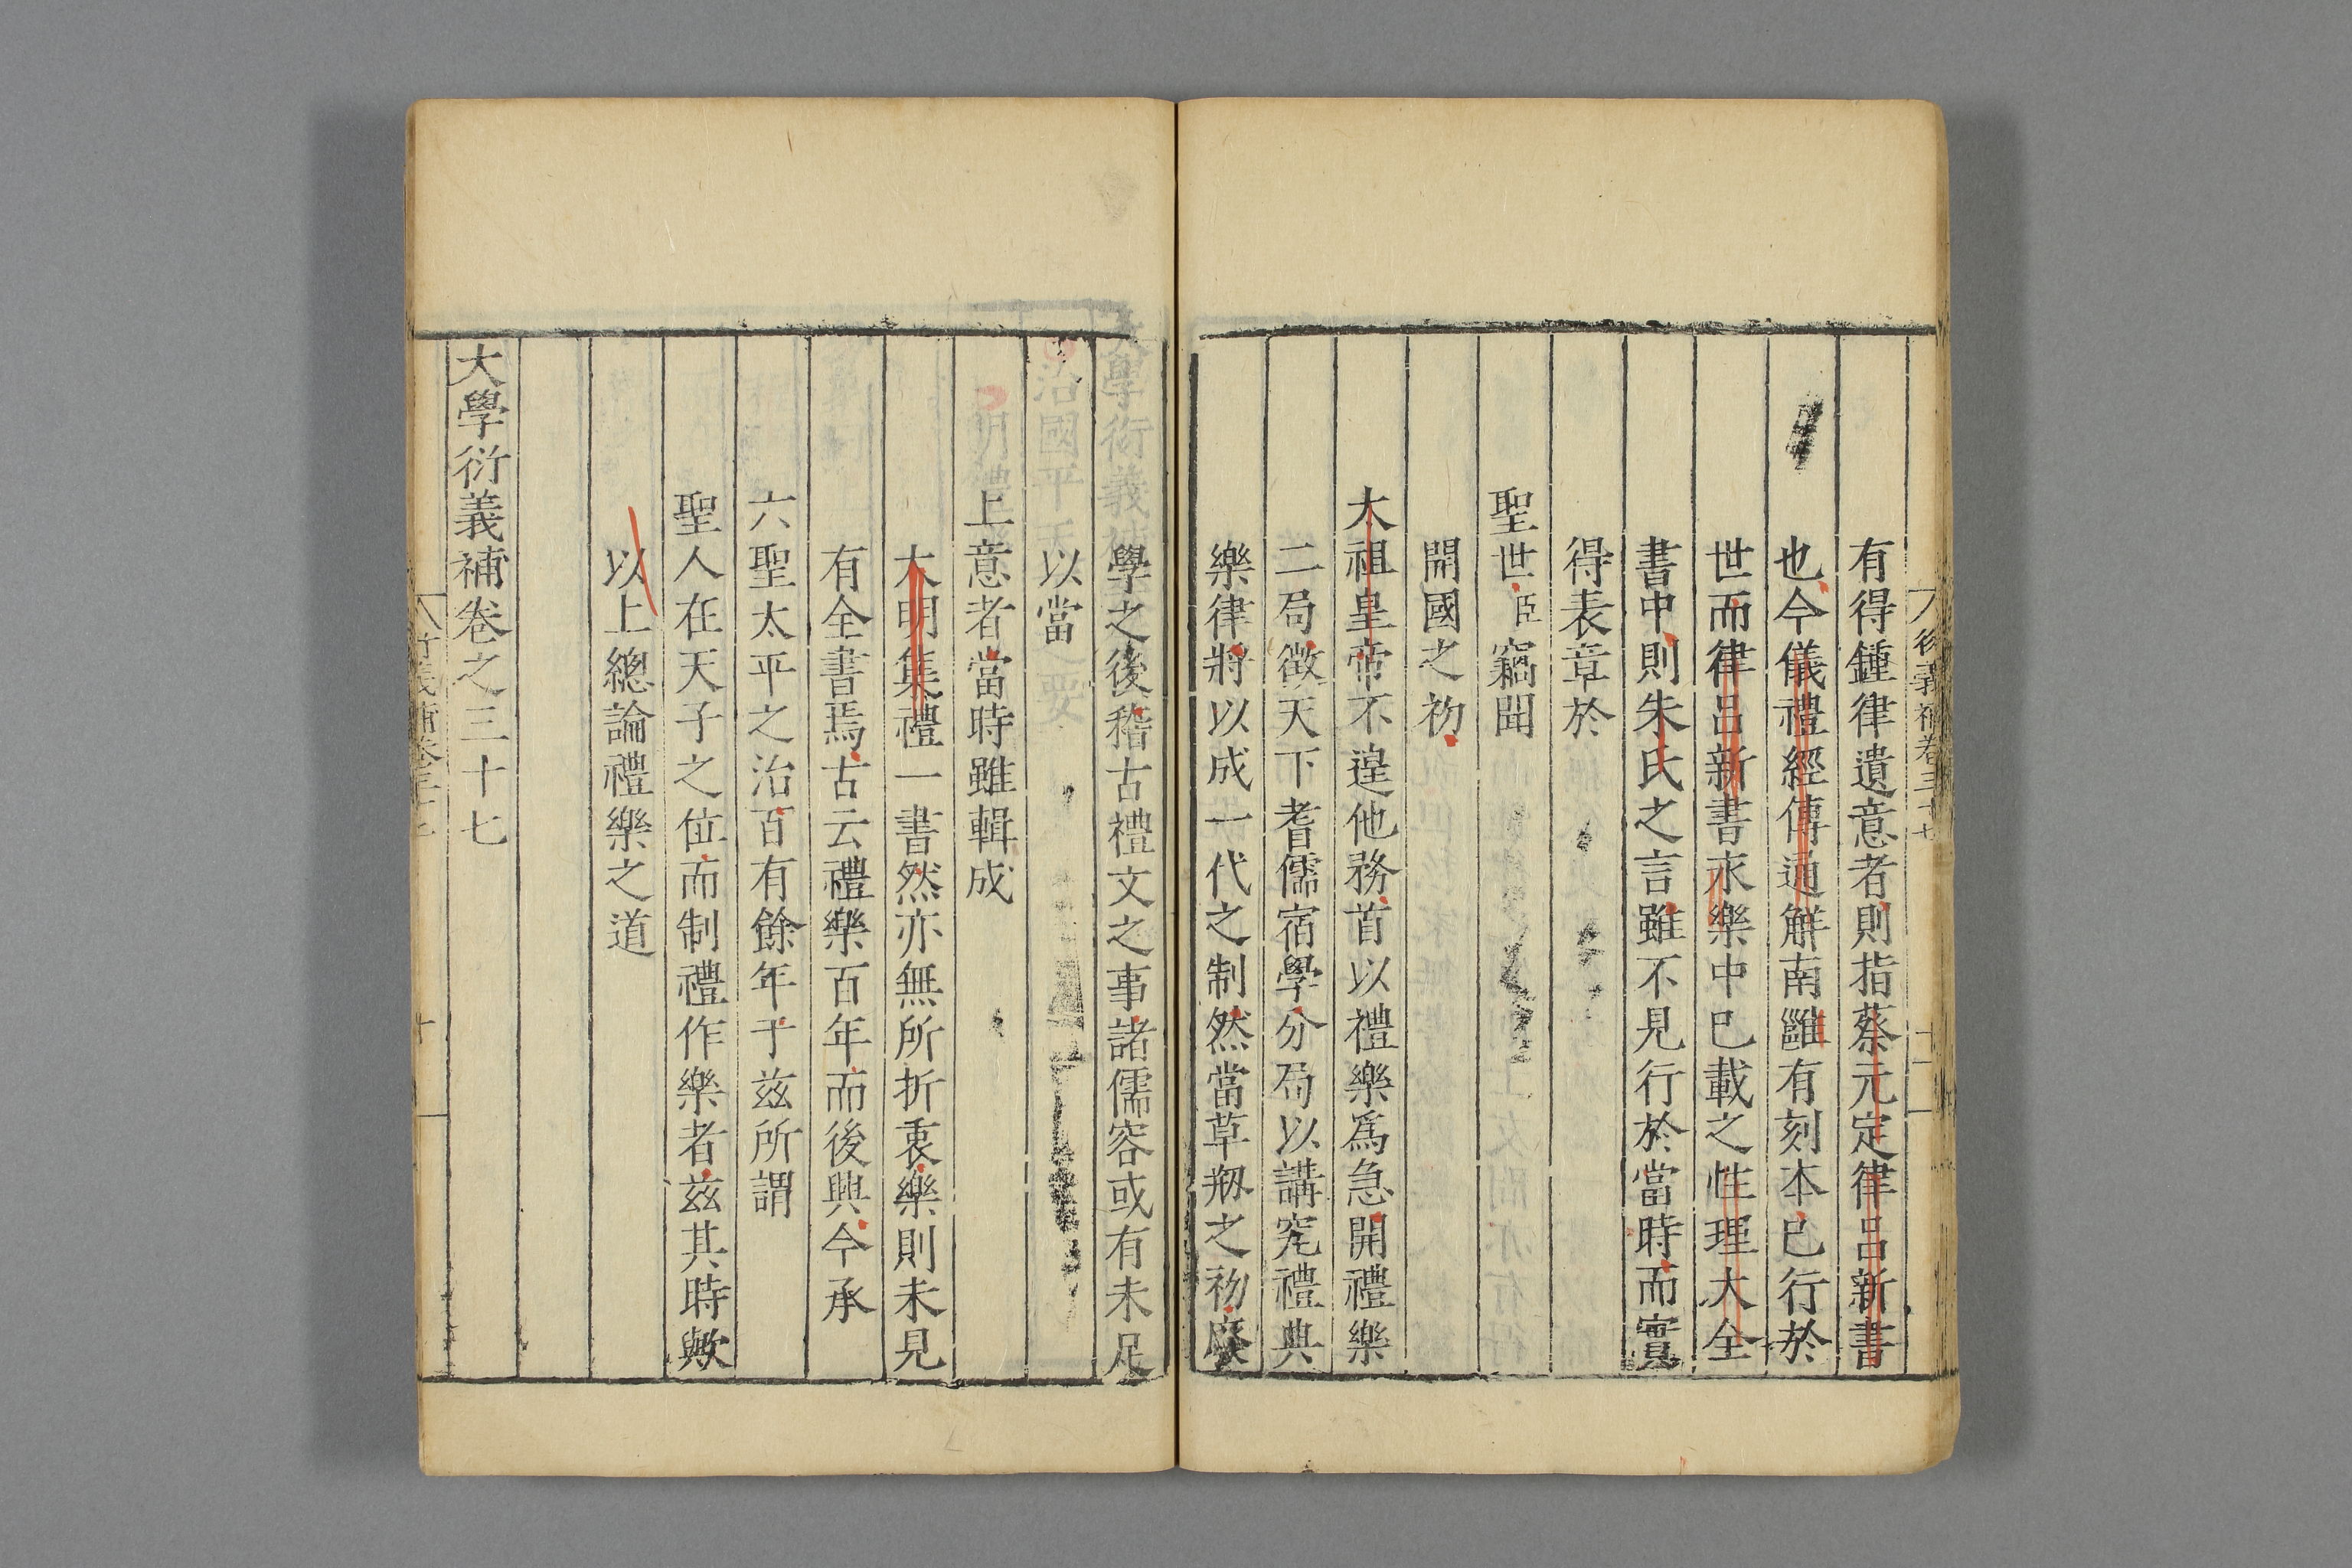 有得鍾律遺意者則指蔡元定律呂新書
也今儀禮經傳通解南雝有刻本已行於
世而律呂新書永樂中已載之性理大全
書中則朱氏之言雖不見行於當時而實
得表章於
聖世臣竊聞
開國之初
太祖皇帝不遑他務首以禮樂爲急開禮樂
二局徵天下耆儒宿學分局以講究禮典
樂律將以成一代之制然當草剏之初廢
學之後稽古禮文之事諸儒容或有未足
以當
上意者當時雖輯成
大明集禮一書然亦無所折衷樂則未見
有全書焉古云禮樂百年而後興今承
六聖太平之治百有餘年于兹所謂
聖人在天子之位而制禮作樂者兹其時歟
以上總論禮樂之道
大學衍義補卷之三十七